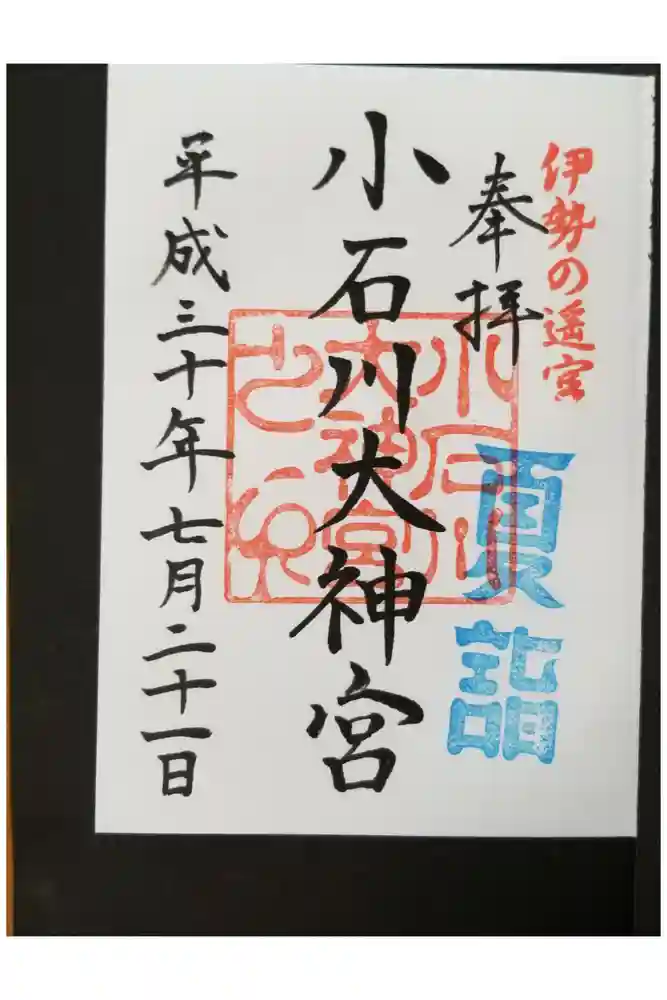 伊勢の遥宮
奉拝
夏詣
小石川大神宮
小石川大神宮之印
平成三十年七月二十一日